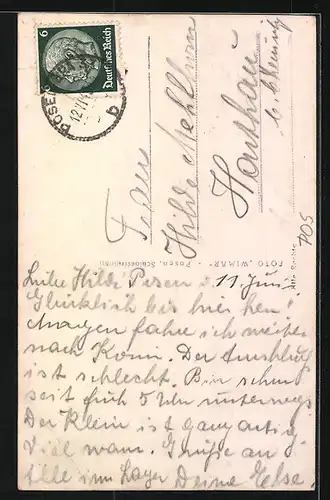 6
Deutsches Reich
POSEN
12.
b
Frau
Hilde Mehlhorn
Harthau
b. Chemnitz
705
FOTO „WIMAR“ - Posen, Schlossfreiheit
Alle Rechte
Liebe Hilde! Posen d. 11 Juni.
Glücklich bis hier her.
Morgen fahre ich weiter
nach Konin. Der Anschluß
ist schlecht. Bin schon
seit früh 5 Uhr unterwegs
Der Klein ist ganz artig
Viel warm. Grüße an
alle im Lager Deine Else.